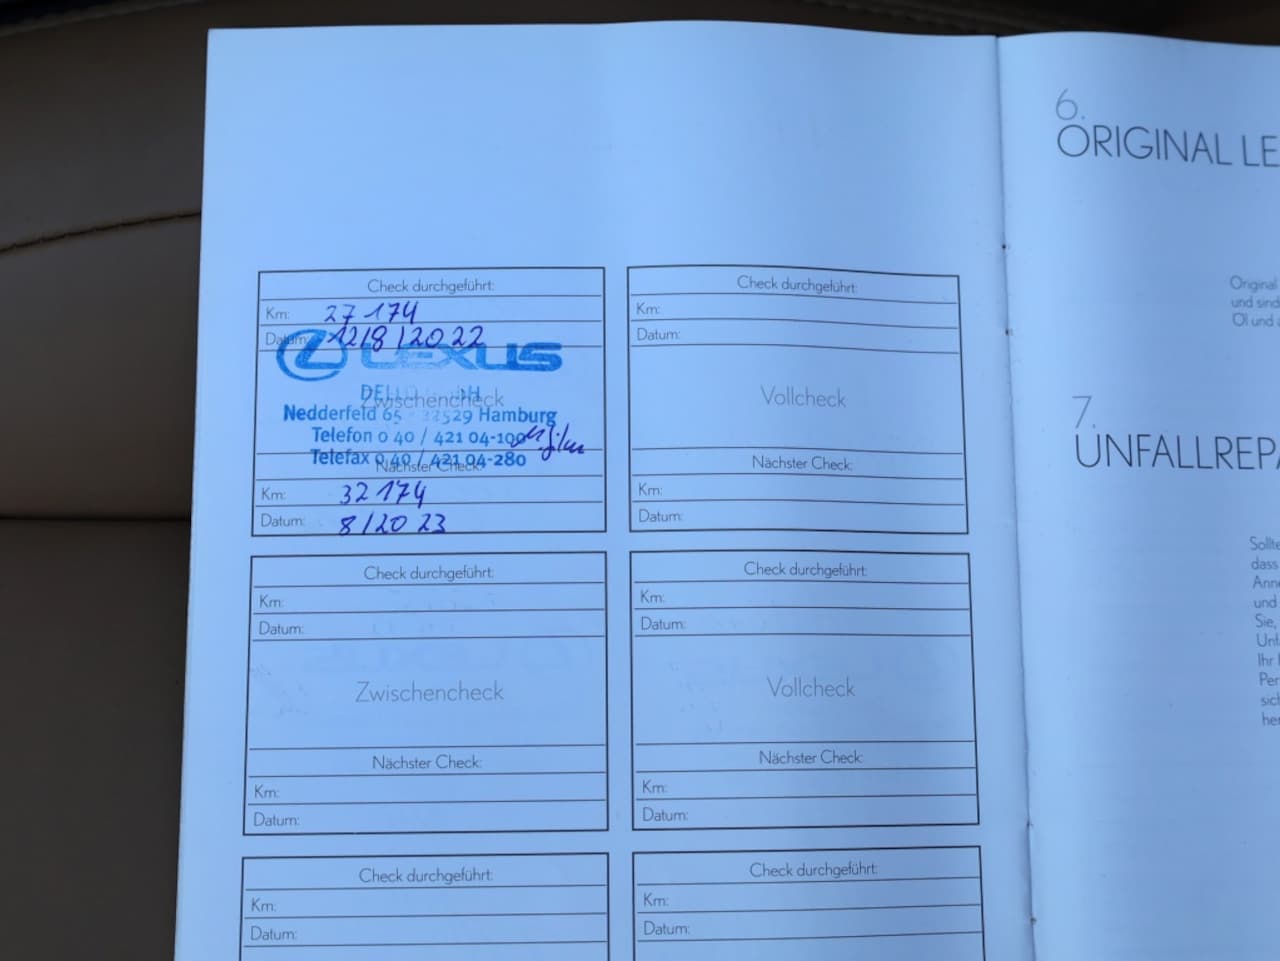 Check durchgeführt:
Km: 27 174
Datum: 12/8/2022
LEXUS
Zwischencheck
Nedderfeld 65 22529 Hamburg
Telefon 0 40 / 421 04-100
Telefax 0 40 / 421 04-280
Nächster Check:
Km: 32 174
Datum: 8/20 23
Check durchgeführt:
Km:
Datum:
Vollcheck
Nächster Check:
Km:
Datum:
Check durchgeführt:
Km:
Datum:
Zwischencheck
Nächster Check:
Km:
Datum:
Check durchgeführt:
Km:
Datum:
Vollcheck
Nächster Check:
Km:
Datum:
Check durchgeführt:
Km:
Datum:
Check durchgeführt:
Km:
Datum:
6.
ORIGINAL LE
Original
und sind
Öl und
7.
UNFALLREPA
Sollte
dass
Anne
und
Sie,
Unf
Ihr
Per
sich
her